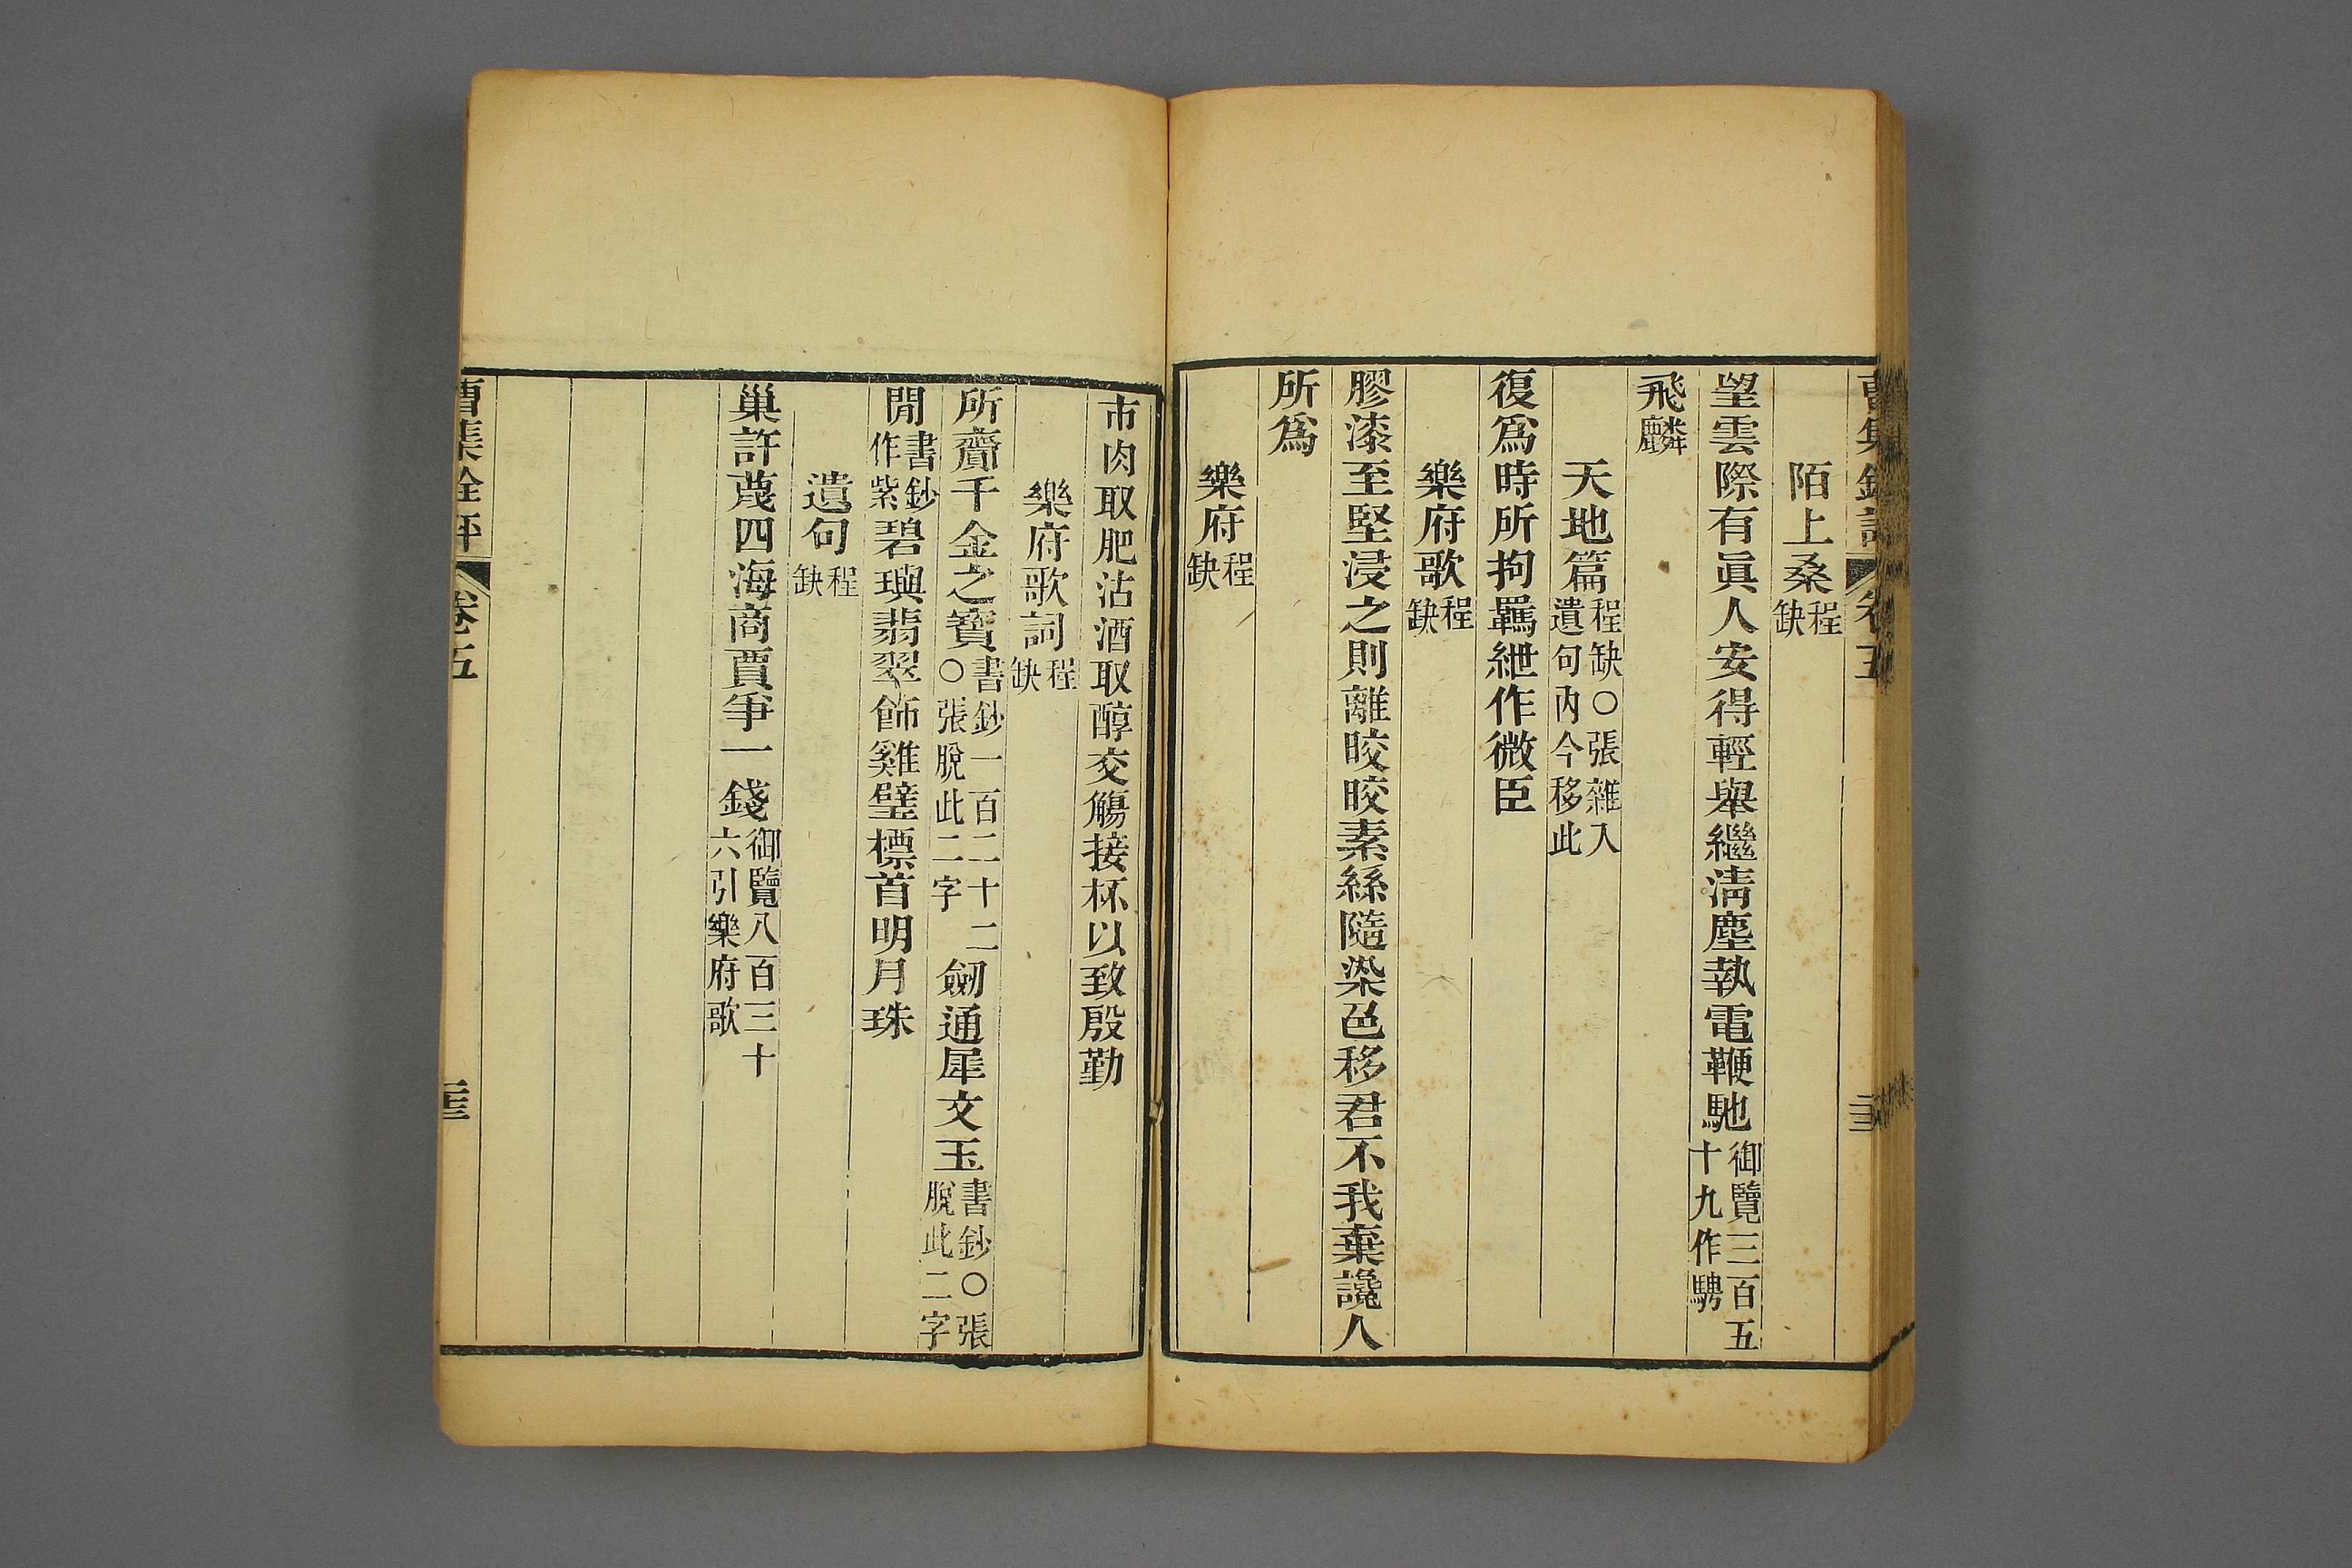 曹集銓評 卷五
陌上桑程缺
望雲際有眞人安得輕舉繼淸塵執電鞭馳御覽三百五十九作騁
飛麟
天地篇程缺○張雜入遺句內今移此
復爲時所拘羈紲作微臣
樂府歌程缺
膠漆至堅浸之則離皎皎素絲隨染色移君不我棄讒人
所爲
樂府程缺
市肉取肥沽酒取醇交觴接杯以致殷勤
樂府歌詞程缺
所齎千金之寶書鈔一百二十二○張脫此二字劒通犀文玉書鈔○張脫此二字
閒書鈔作紫碧璵翡翠飾雞璧標首明月珠
遺句程缺
巢許蔑四海商賈爭一錢御覽八百三十六引樂府歌
曹集銓評 卷五